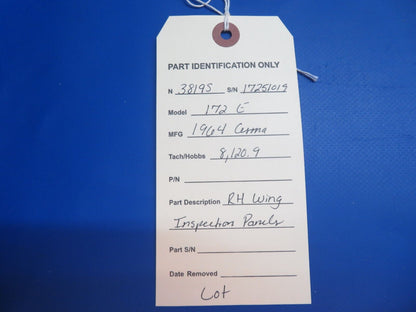 PART IDENTIFICATION ONLY
N 3819S S/N 17251019
Model 172 E
MFG 1964 Cessna
Tach/Hobbs 8,120.9
P/N
Part Description RH Wing
Inspection Panels
Part S/N
Date Removed
Lot